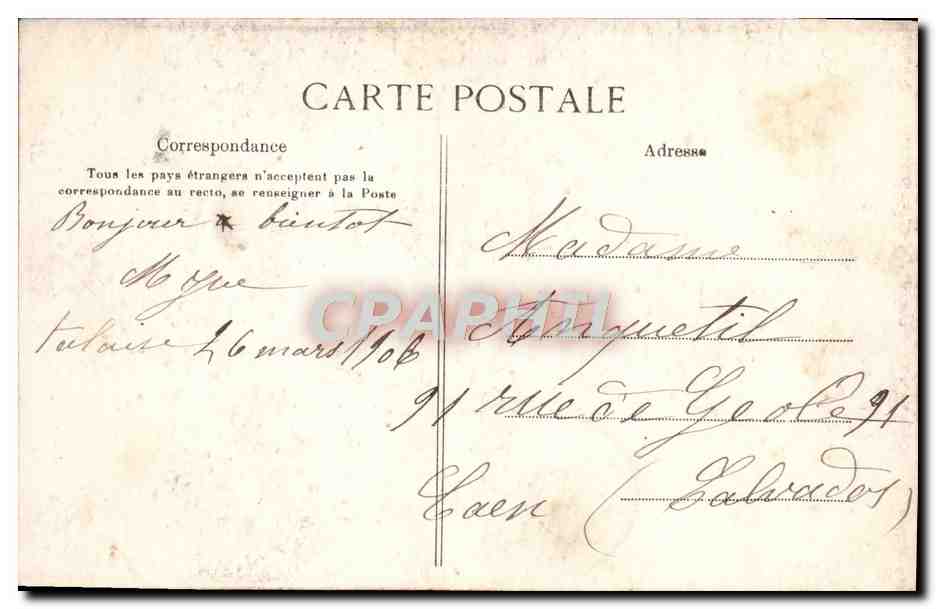 CARTE POSTALE
Correspondance
Tous les pays étrangers n'acceptent pas la
correspondance au recto, se renseigner à la Poste
Bonjour a bientot
falaise 26 mars 1906
Adresse
Madame
Anquetil
91 rue de Geole 91
Caen (Calvados)
CPAPHIL